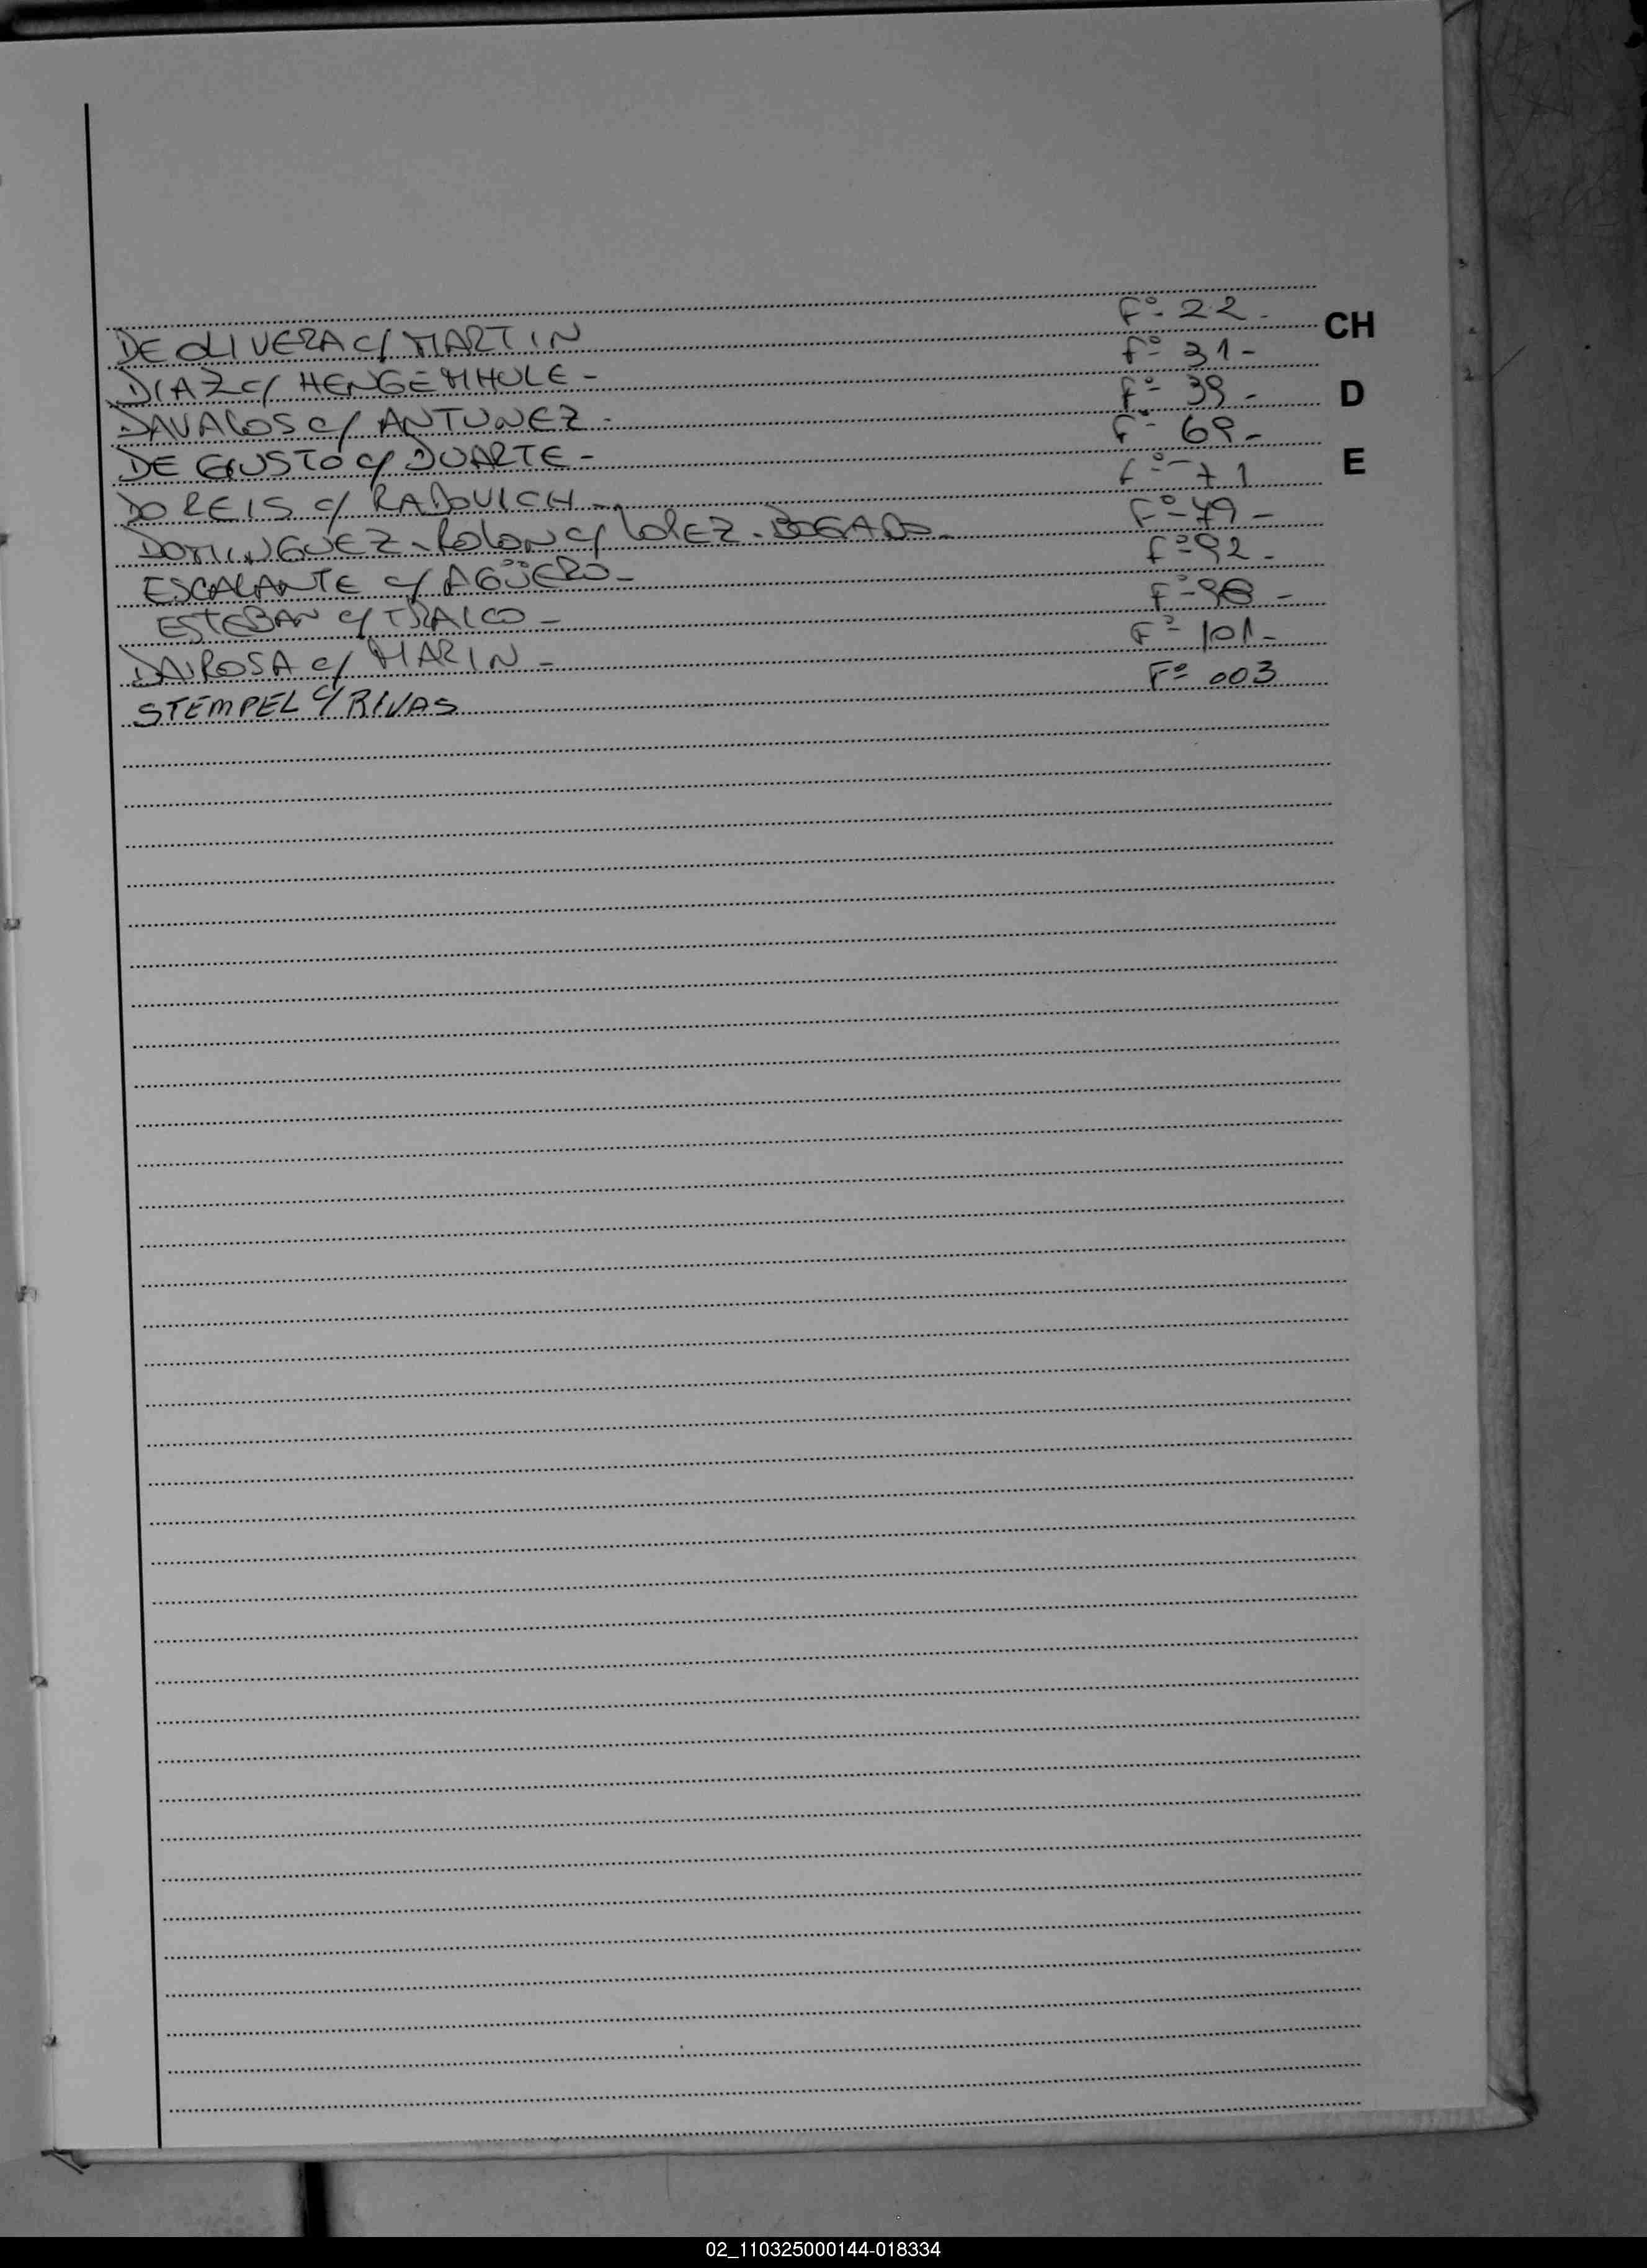 DE OLIVERA C/ MARTIN F° 22-
CH
DIAZ C/ HENGEMHULE - F° 31-
DAVALOS C/ ANTUNEZ - F° 39-
D
DE GIUSTO C/ DUARTE - F° 69-
DO REIS C/ RADOVICH - F° 71
E
DOMINGUEZ - ROLON C/ LOPEZ - BOGADO - F° 79-
ESCALANTE C/ AGÜERO - F° 92-
ESTEBAN C/ F° 98-
DA ROSA C/ MARIN - F° 101-
STEMPEL C/ RIVAS F° 003
02_110325000144-018334